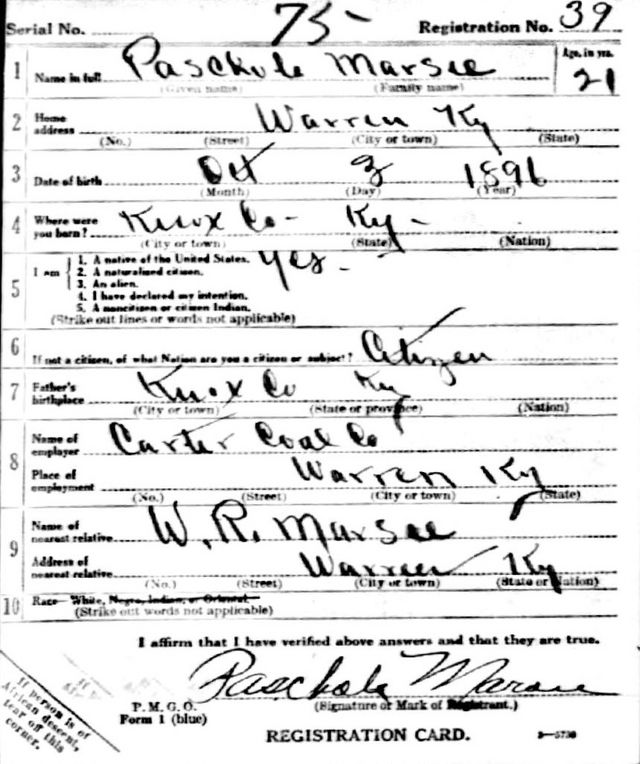 Serial No. 75- Registration No. 39
1 Name in full Paschole Marsee Age, in yrs.
(Given name) (Family name) 21
2 Home address Warren Ky
(No.) (Street) (City or town) (State)
3 Date of birth Oct 3 1896
(Month) (Day) (Year)
4 Where were you born? Knox Co- Ky-
(City or town) (State) (Nation)
5 I am
1. A native of the United States. Yes-
2. A naturalized citizen.
3. An alien.
4. I have declared my intention.
5. A noncitizen or citizen Indian.
(Strike out lines or words not applicable)
6 If not a citizen, of what Nation are you a citizen or subject? Citizen
7 Father's birthplace Knox Co Ky
(City or town) (State or province) (Nation)
8 Name of employer Carter Coal Co
Place of employment Warren Ky
(No.) (Street) (City or town) (State)
9 Name of nearest relative W. R. Marsee
Address of nearest relative Warren Ky
(No.) (Street) (City or town) (State or Nation)
10 Race—White, Negro, Indian, or Oriental
(Strike out words not applicable)
I affirm that I have verified above answers and that they are true.
Paschole Marsee
(Signature or Mark of Registrant.)
P. M. G. O.
Form 1 (blue)
REGISTRATION CARD.
3—5739
If person is of
African descent,
tear off this
corner.